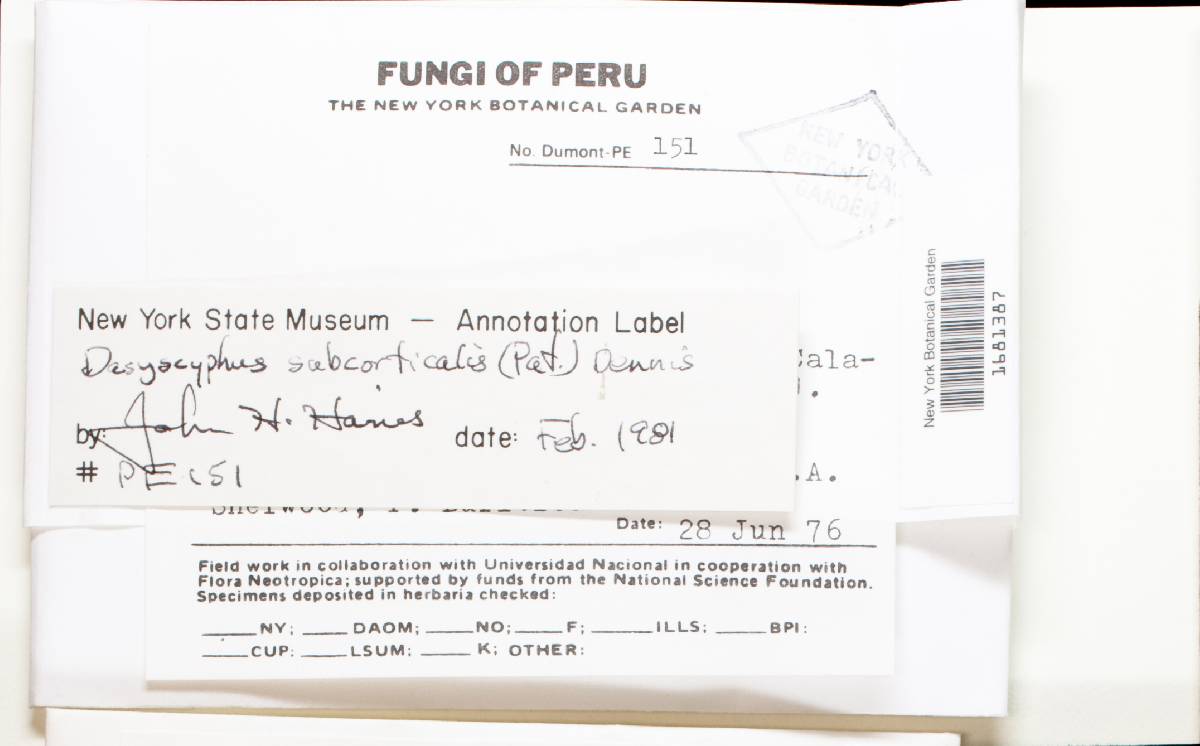 FUNGI OF PERU
THE NEW YORK BOTANICAL GARDEN
No. Dumont-PE 151
NEW YORK
BOTANICAL
GARDEN
New York Botanical Garden
1681387
New York State Museum — Annotation Label
Dasyscyphus subcorticalis (Pat.) Dennis
by: John H. Haines date: Feb. 1981
# PE 151
Cala-
.A.
Date: 28 Jun 76
Field work in collaboration with Universidad Nacional in cooperation with
Flora Neotropica; supported by funds from the National Science Foundation.
Specimens deposited in herbaria checked:
____NY; ____ DAOM; ____NO; ____F; ____ILLS; ____BPI:
____CUP: ____LSUM; ____ K; OTHER: